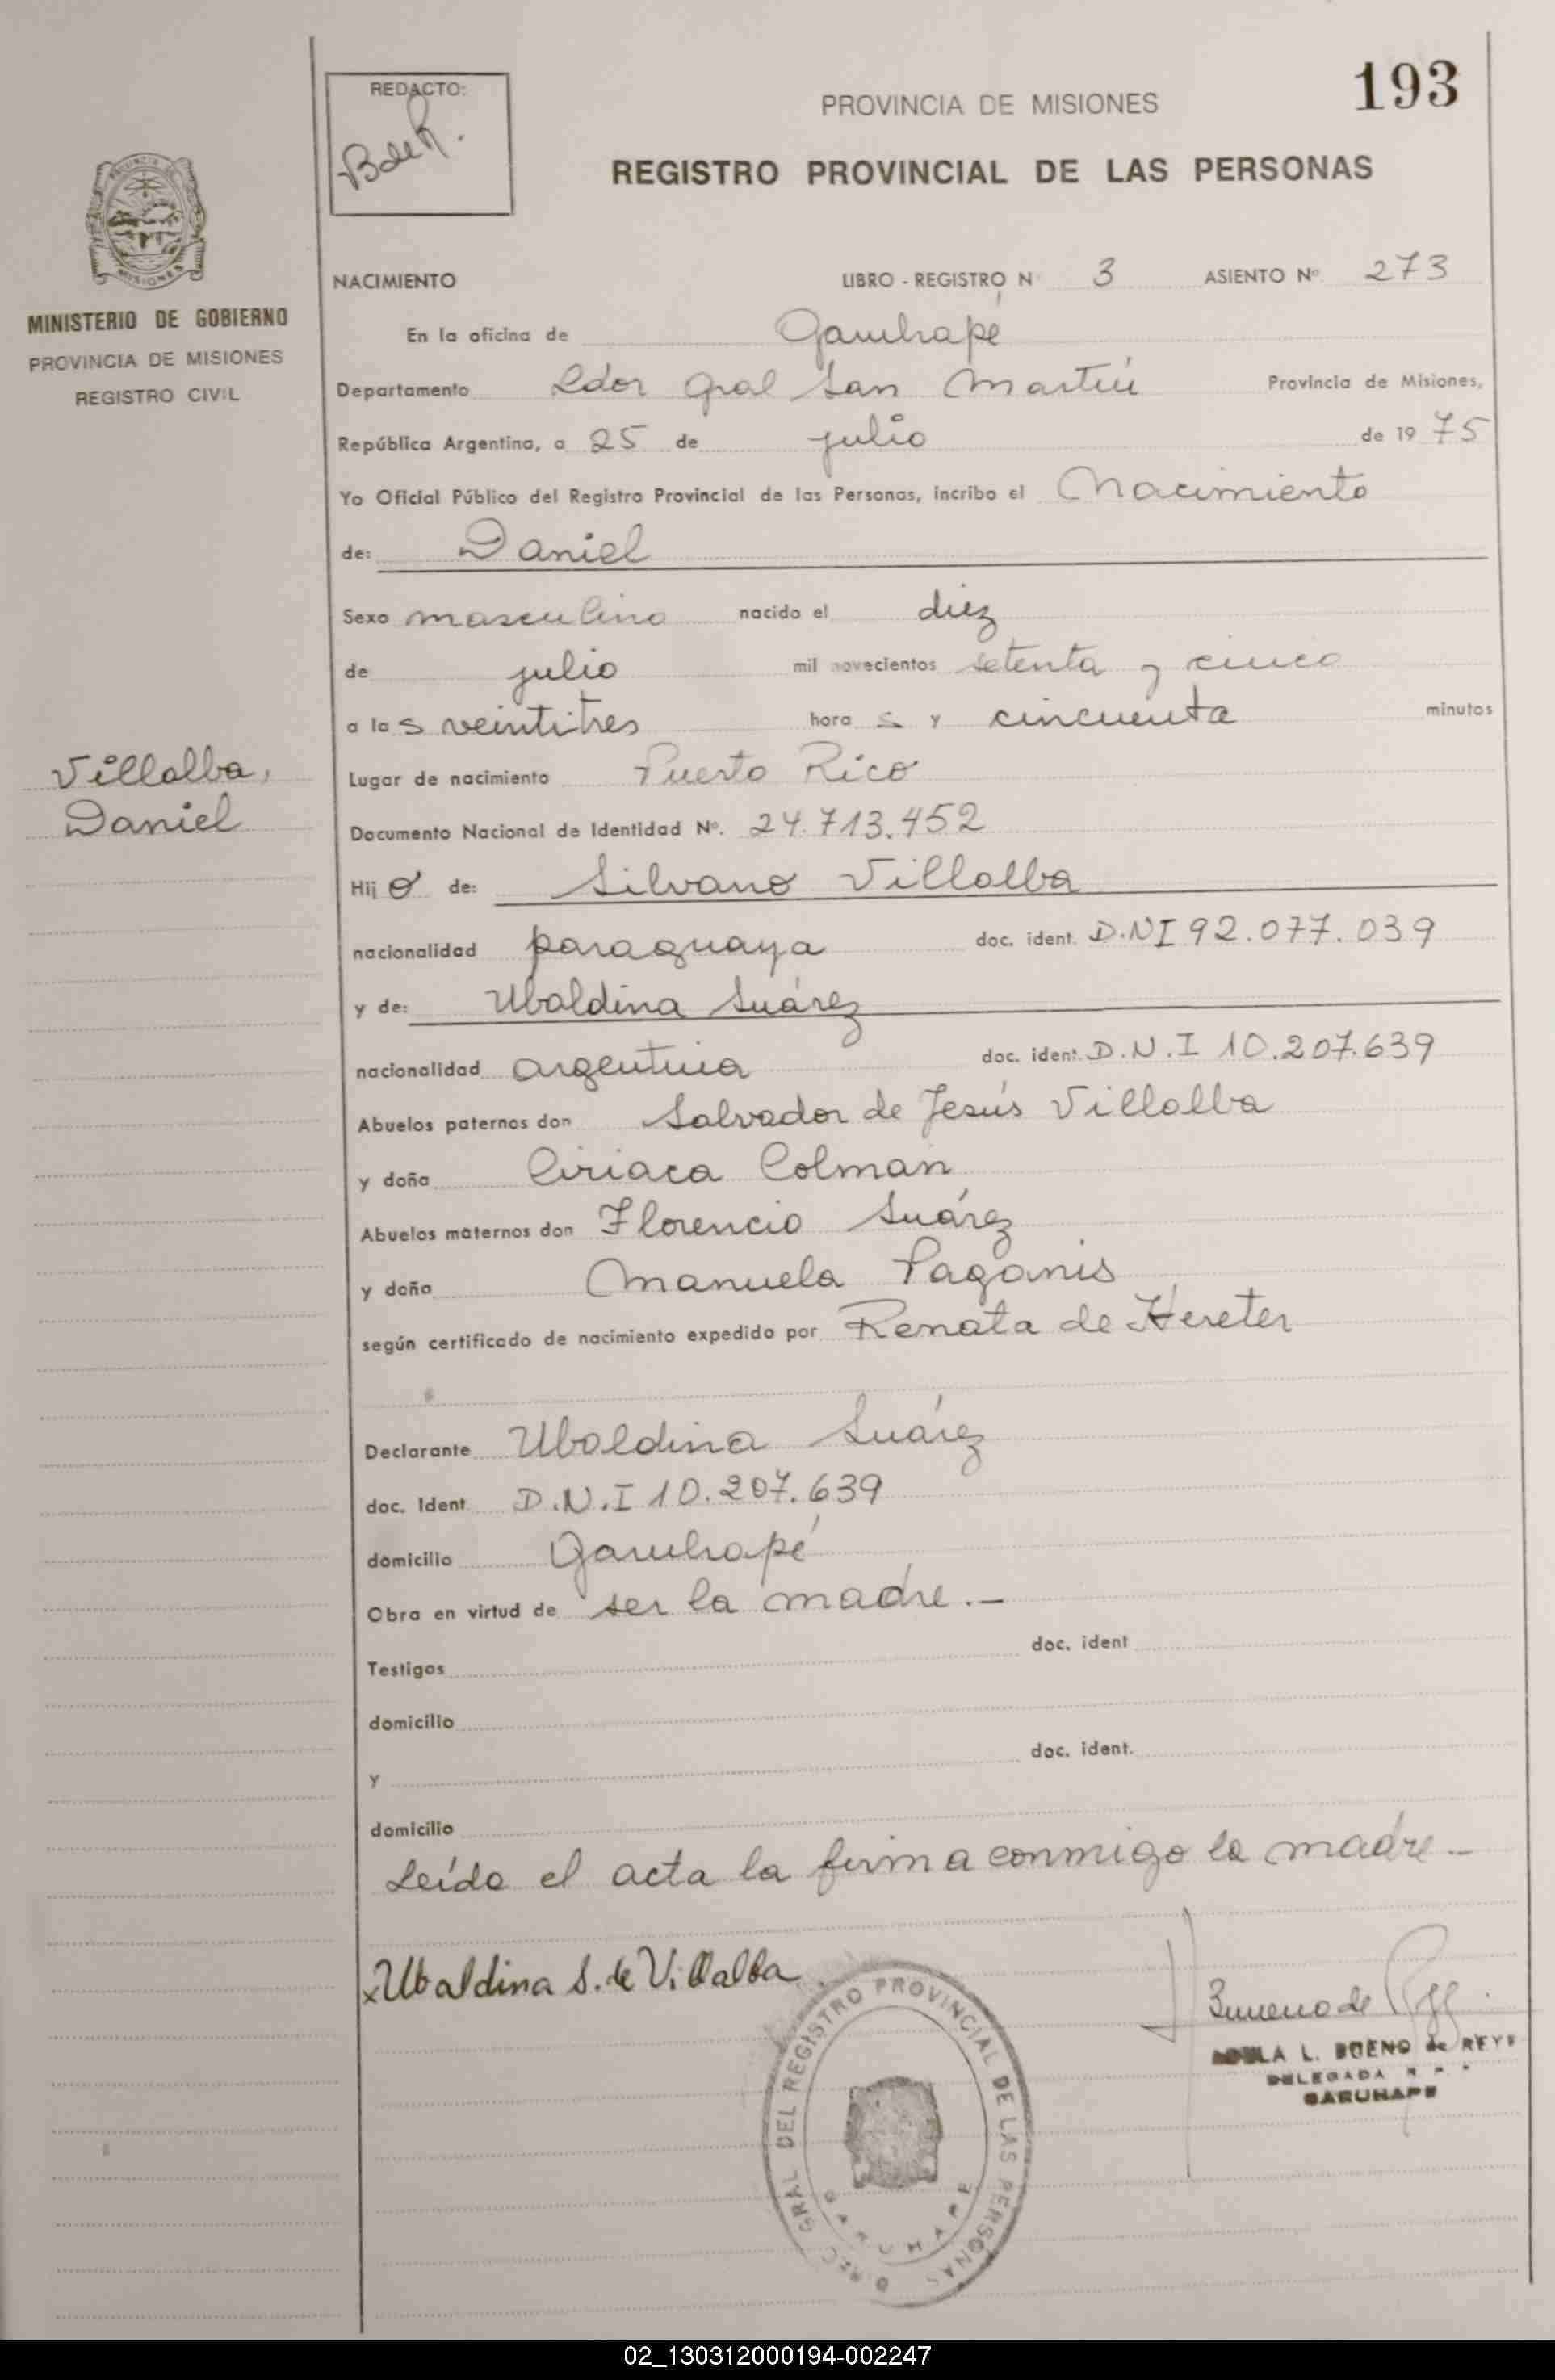 193
REDACTO:
PROVINCIA DE MISIONES
REGISTRO PROVINCIAL DE LAS PERSONAS
MINISTERIO DE GOBIERNO
PROVINCIA DE MISIONES
REGISTRO CIVIL
NACIMIENTO LIBRO - REGISTRO N° 3 ASIENTO N° 273
En la oficina de Garuhapé
Departamento Ldor Gral San Martín Provincia de Misiones,
República Argentina, a 25 de julio de 19 75
Yo Oficial Público del Registro Provincial de las Personas, incribo el Nacimiento
de: Daniel
Sexo masculino nacido el diez
de julio mil novecientos setenta y cinco
a las veintitres hora s y cincuenta minutos
Villalba,
Daniel
Lugar de nacimiento Puerto Rico
Documento Nacional de Identidad N°. 24.713.452
Hijo de: Silvano Villalba
nacionalidad paraguaya doc. ident. D.NI 92.077.039
y de: Ubaldina Suárez
nacionalidad argentina doc. ident. D.N.I 10.207.639
Abuelos paternos don Salvador de Jesús Villalba
y doña Ciriaca Colman
Abuelos maternos don Florencio Suárez
y doña Manuela Paganis
según certificado de nacimiento expedido por Renata de Hereter
Declarante Ubaldina Suárez
doc. Ident D.N.I 10.207.639
domicilio Garuhapé
Obra en virtud de ser la madre.-
Testigos doc. ident
domicilio
y doc. ident.
domicilio
Leída el acta la firma conmigo la madre-
x Ubaldina S. de Villalba
DIREC. GRAL DEL REGISTRO PROVINCIAL DE LAS PERSONAS
GARUHAPE
L. BUENO de REYES
DELEGADA
GARUHAPE
02_130312000194-002247